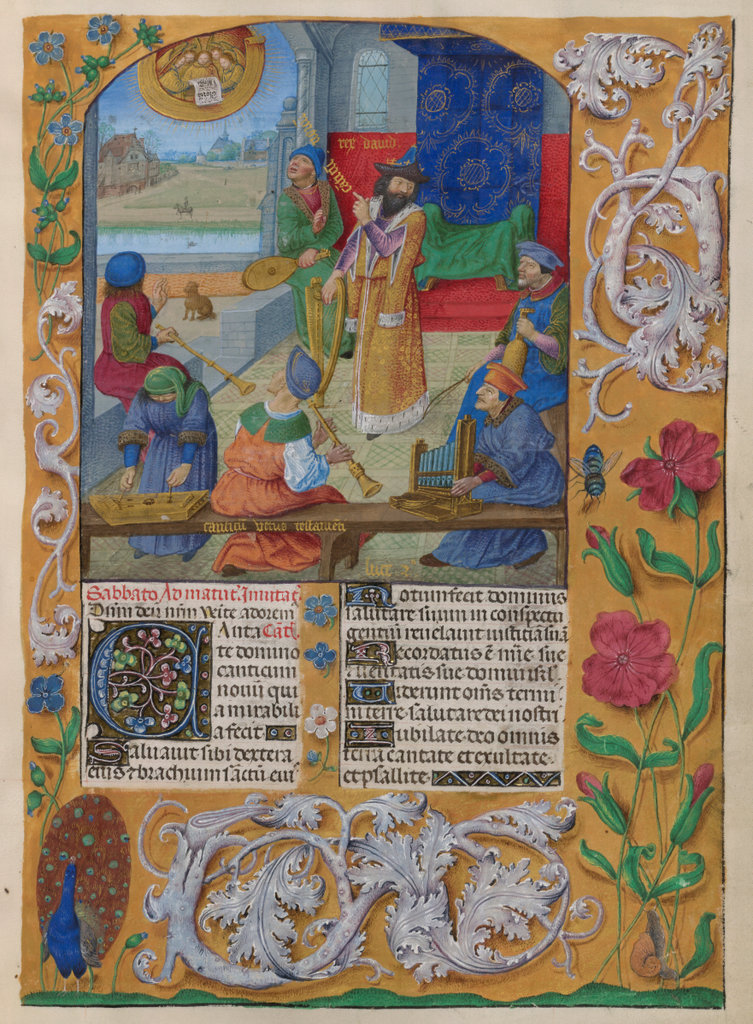 rex david
Sabbato Ad matut' Inuitat'
Dñm deũ nr̃m venite adorem
CAnta Cãt.
te domino
canticum
nouũ qui
a mirabili
a fecit
Saluauit sibi dextera
eius & brachium sãctũ eiu
Notum fecit dominus
salutare suum in conspectu
gentiũ reuelauit iustitiã suã
Recordatus ẽ mĩe sue
& ueritatis sue domui isl̃.
Uiderunt om̃s termi
ni terre salutare dei nostri
Iubilate deo omnis
terra cantate et exultate
et psallite